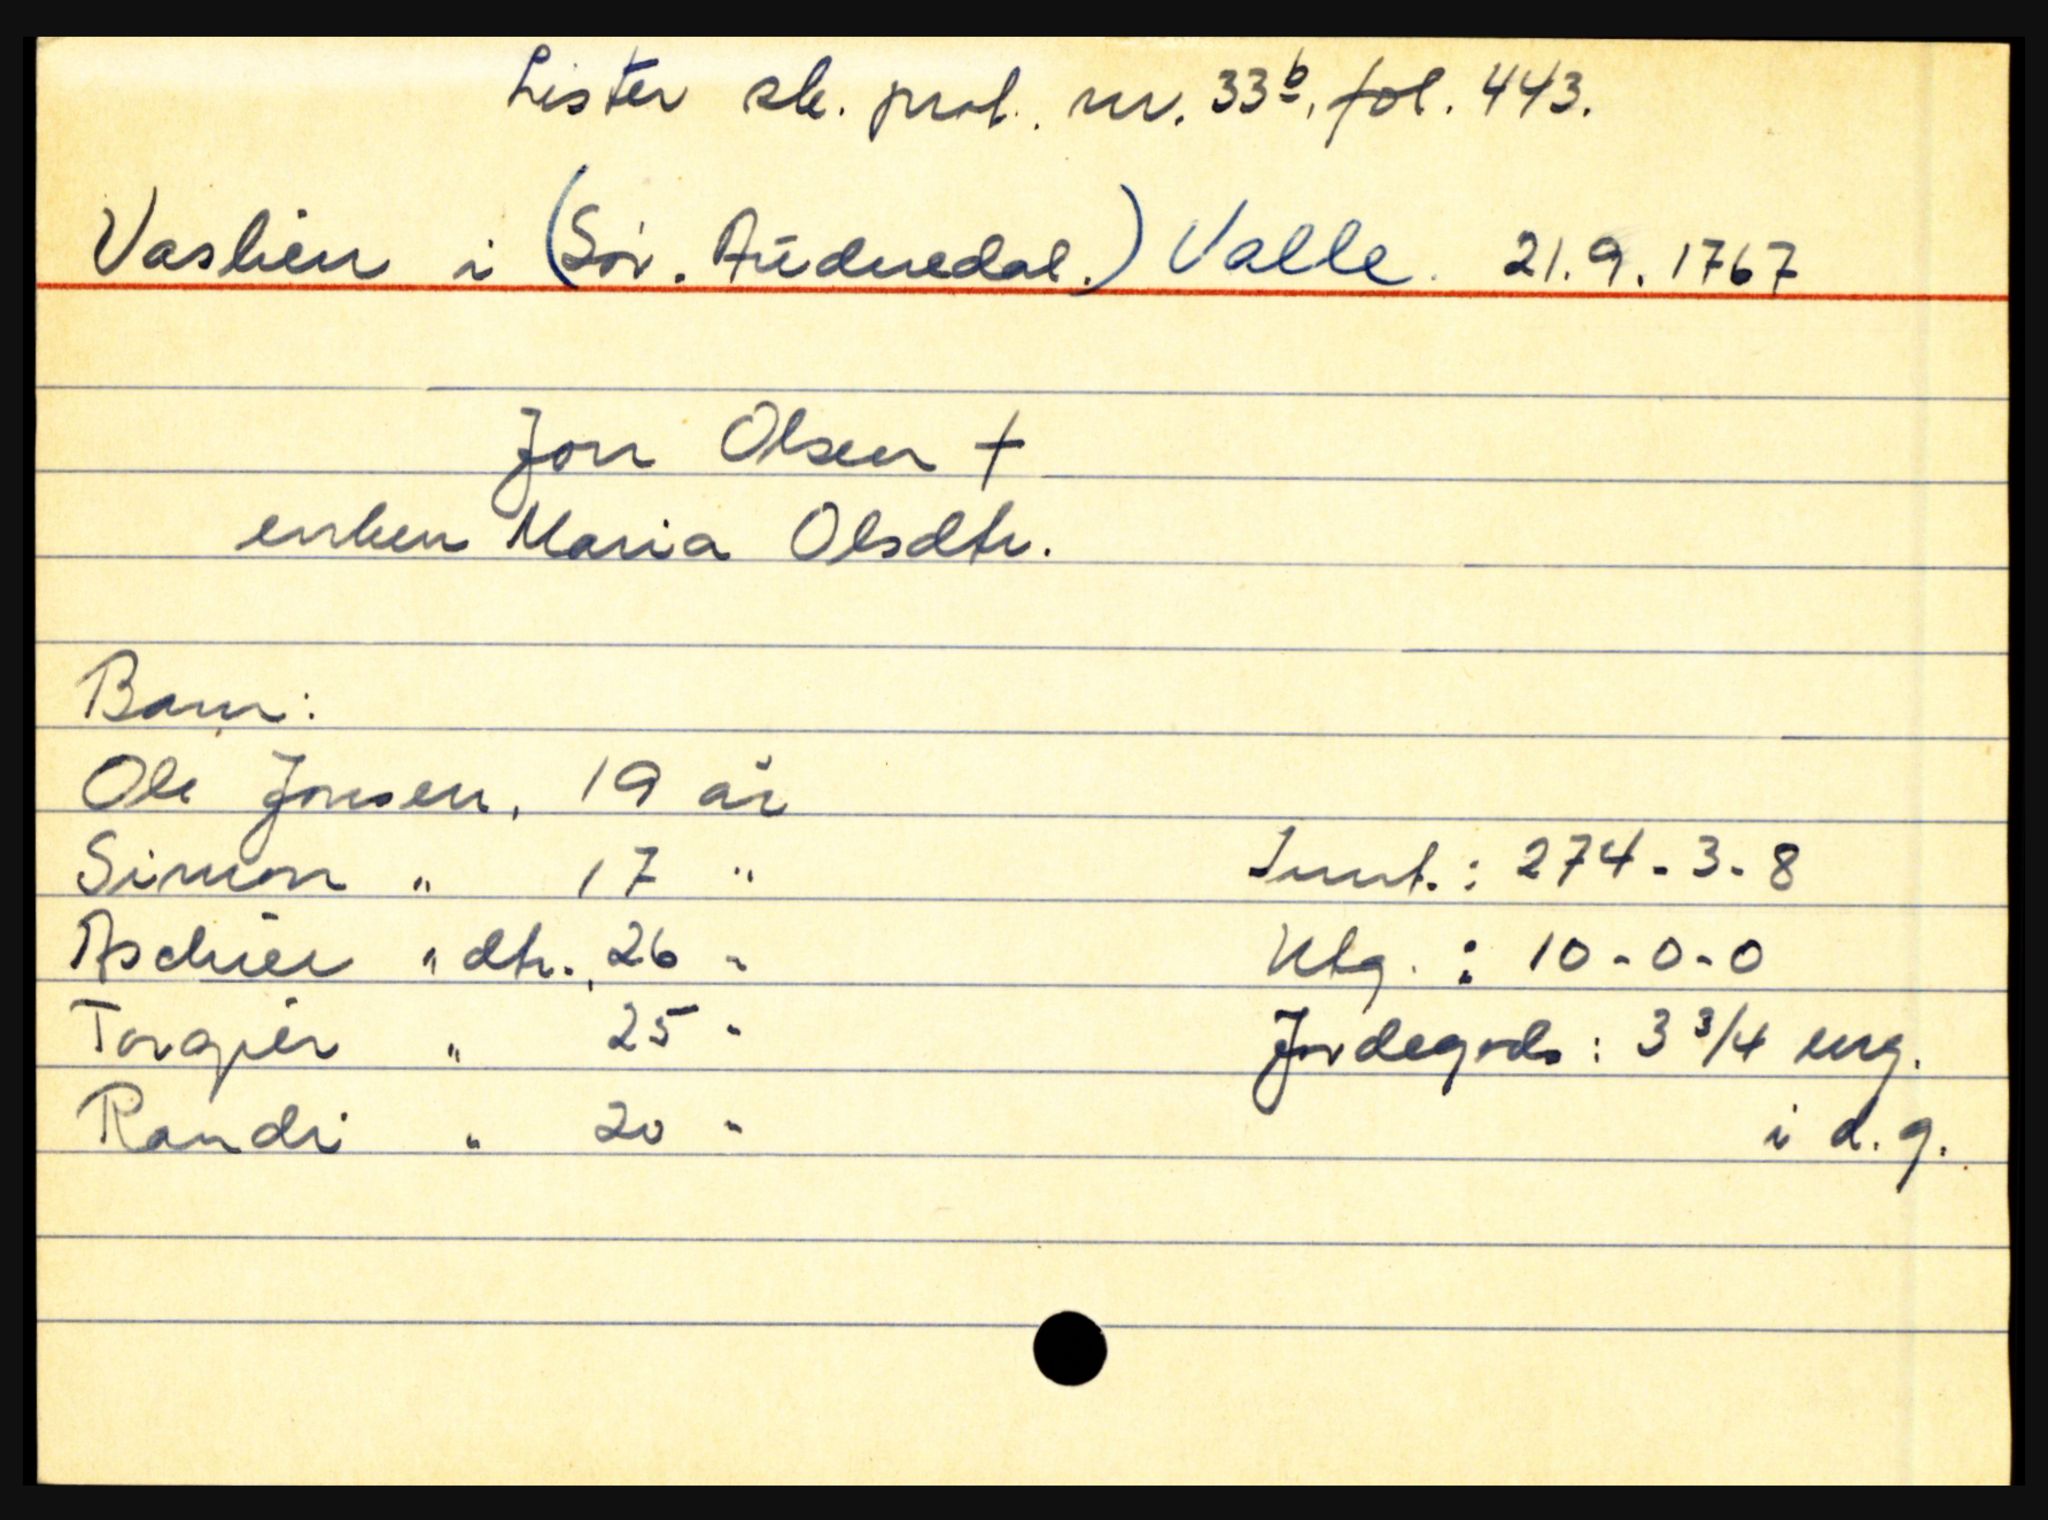 Lister sk. prot. nr. 33b, fol. 443.
Vaslien i (Sør. Audnedal.) Valle. 21.9.1767
Jon Olsen †
enken Maria Olsdtr.
Barn:
Ole Jonsen, 19 år
Simon " 17 "
Innt. : 274-3-8
" dtr., 26 "
Utg. : 10-0-0
Torgier " 25 "
Jordegods : 3 3/4 eng.
Randi " 20 "
i d.g.